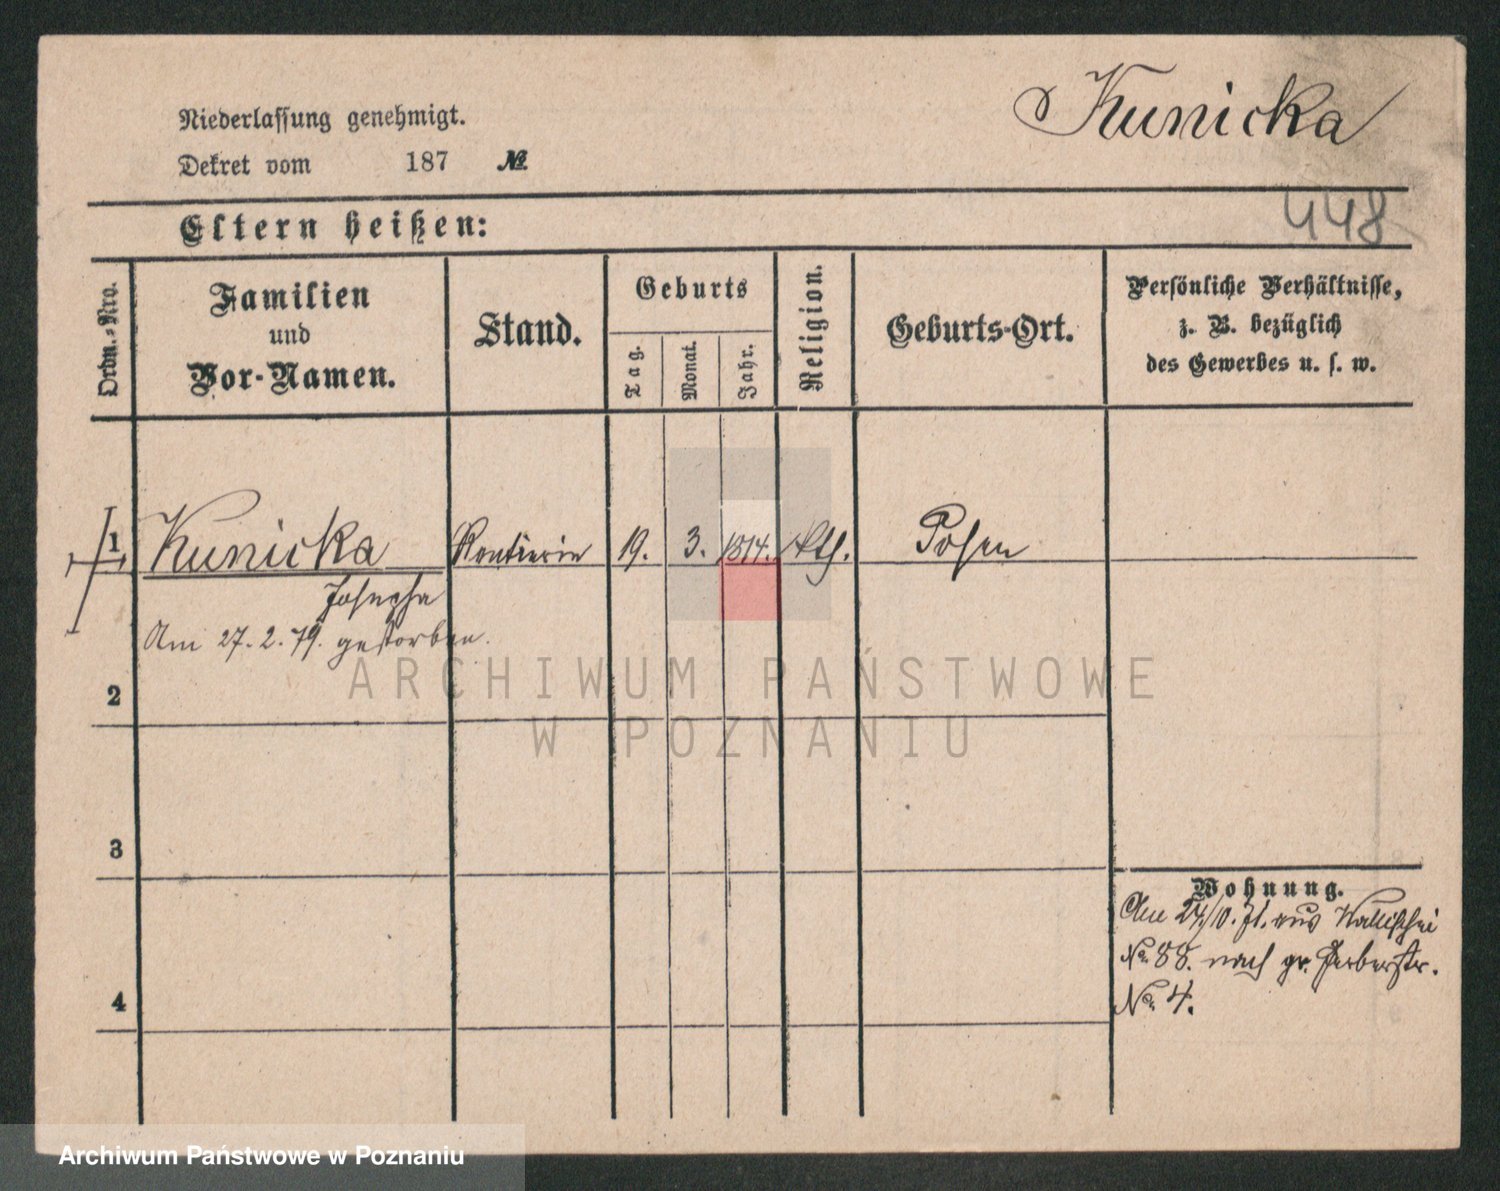 Kunicka
Niederlassung genehmigt.
Dekret vom 187 №
448
Eltern heißen:
Ordn.-Nro.
Familien
und
Vor-Namen.
Stand.
Geburts
Tag.
Monat.
Jahr.
Religion.
Geburts-Ort.
Persönliche Verhältnisse,
z. B. bezüglich
des Gewerbes u. s. w.
1 Kunicka Rentierin 19. 3. 1814. kth. Posen
Josepha
Am 27. 2. 79. gestorben.
2
3
4
Wohnung.
Am 24/10. 71. aus Wallischei
No. 88. nach gr. Gerberstr.
No. 4.
ARCHIWUM PAŃSTWOWE
W POZNANIU
Archiwum Państwowe w Poznaniu